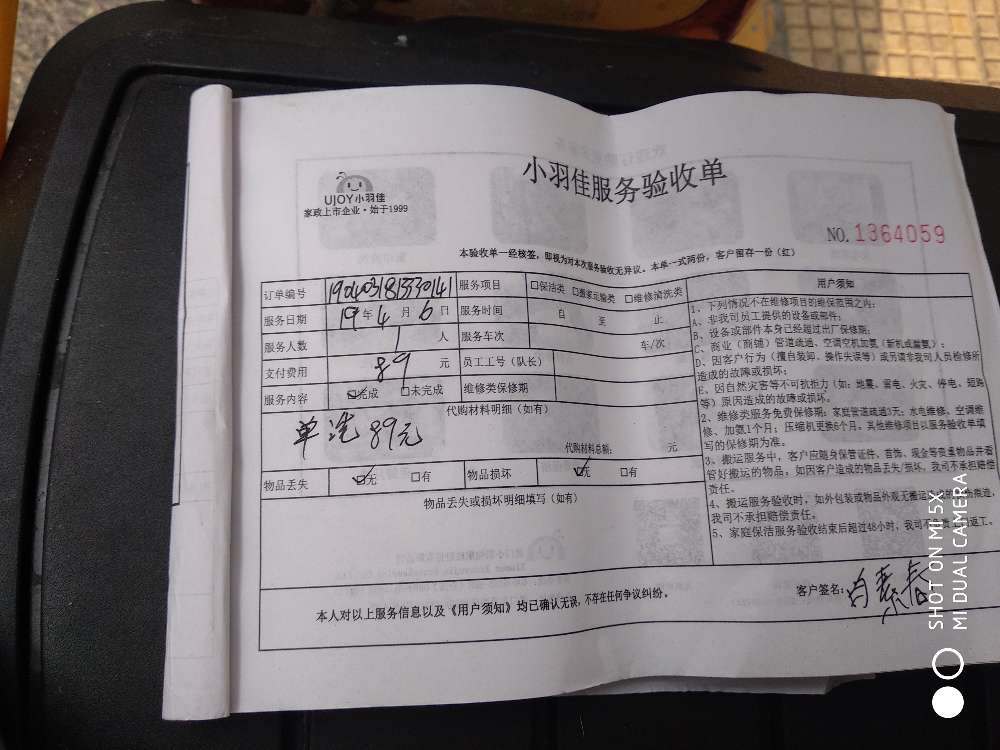 UJOY小羽佳
家政上市企业·始于1999
小羽佳服务验收单
NO. 1364059
本验收单一经核签，即视为对本次服务验收无异议。本单一式两份，客户留存一份（红）
订单编号 服务项目 □保洁类 □搬家运输类 □维修清洗类
服务日期 19年4月6日 服务时间 自 至 止
服务人数 1 人 服务车次 车/次
支付费用 89 元 员工工号（队长）
服务内容 ☑完成 □未完成 维修类保修期
代购材料明细（如有）
单洗 89元
代购材料总额： 元
物品丢失 ☑无 □有 物品损坏 ☑无 □有
物品丢失或损坏明细填写（如有）
用户须知
1、下列情况不在维修项目的维保范围之内：
A、非我司员工提供的设备或部件；
B、设备或部件本身已经超过出厂保修期；
C、商业（商铺）管道疏通、空调空机加氨（新机或漏氨）；
D、因客户行为（擅自装卸、操作失误等）或另请非我司人员检修所
造成的故障或损坏；
E、因自然灾害等不可抗拒力（如：地震、雷电、火灾、停电、短路
等）原因造成的故障或损坏。
2、维修类服务免费保修期：家庭管道疏通3天；水电维修、空调维
修、加氨1个月；压缩机更换6个月。其他维修项目以服务验收单填
写的保修期为准。
3、搬运服务中，客户应随身保管证件、首饰、现金等贵重物品并看
管好搬运的物品，如因客户造成的物品丢失/损坏，我司不承担赔偿
责任。
4、搬运服务验收时，如外包装或物品外观无
我司不承担赔偿责任。
5、家庭保洁服务验收结束后超过48小时，我司不 返工。
本人对以上服务信息以及《用户须知》均已确认无误，不存在任何争议纠纷。
客户签名：
SHOT ON MI 5X
MI DUAL CAMERA